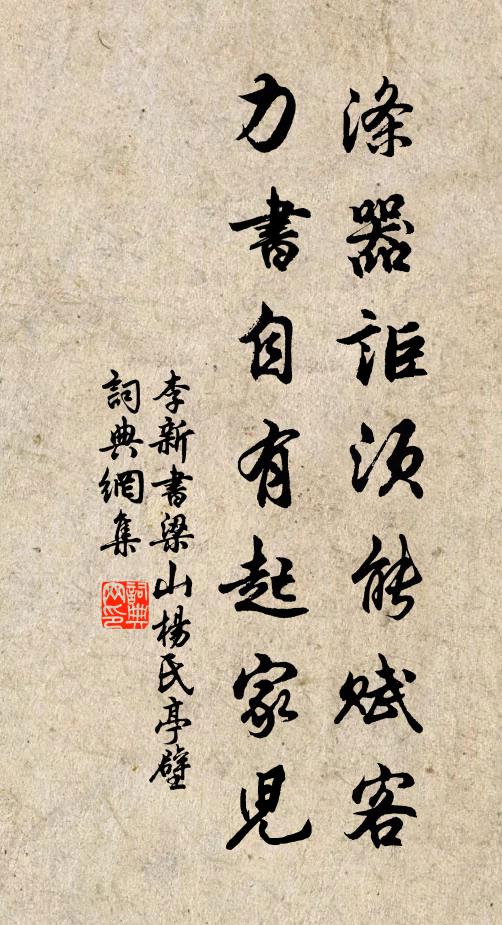 滌器詎須能賦客
力書自有起家兒
李新書梁山楊氏亭壁
詞典網集
詞典网印